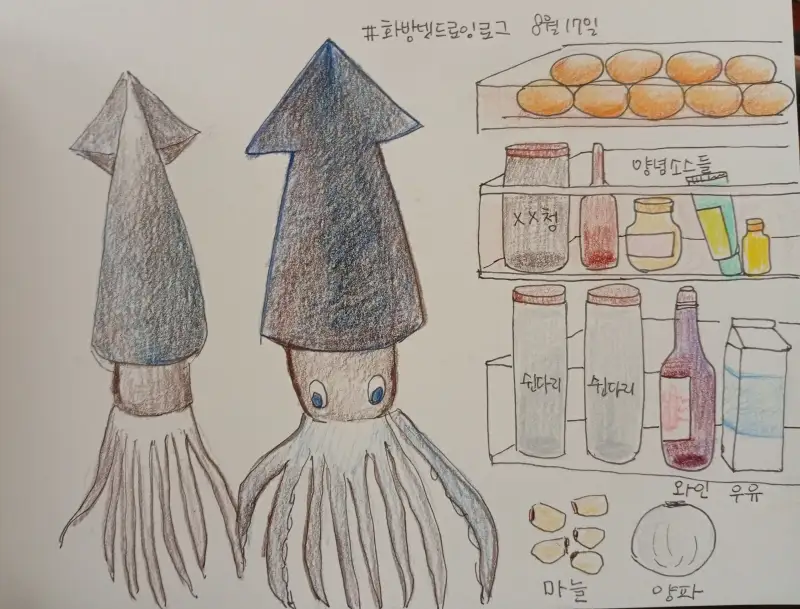 #화방넷드로잉로그 8월 17일
양념소스들
XX청
쉰다리
쉰다리
와인 우유
마늘
양파